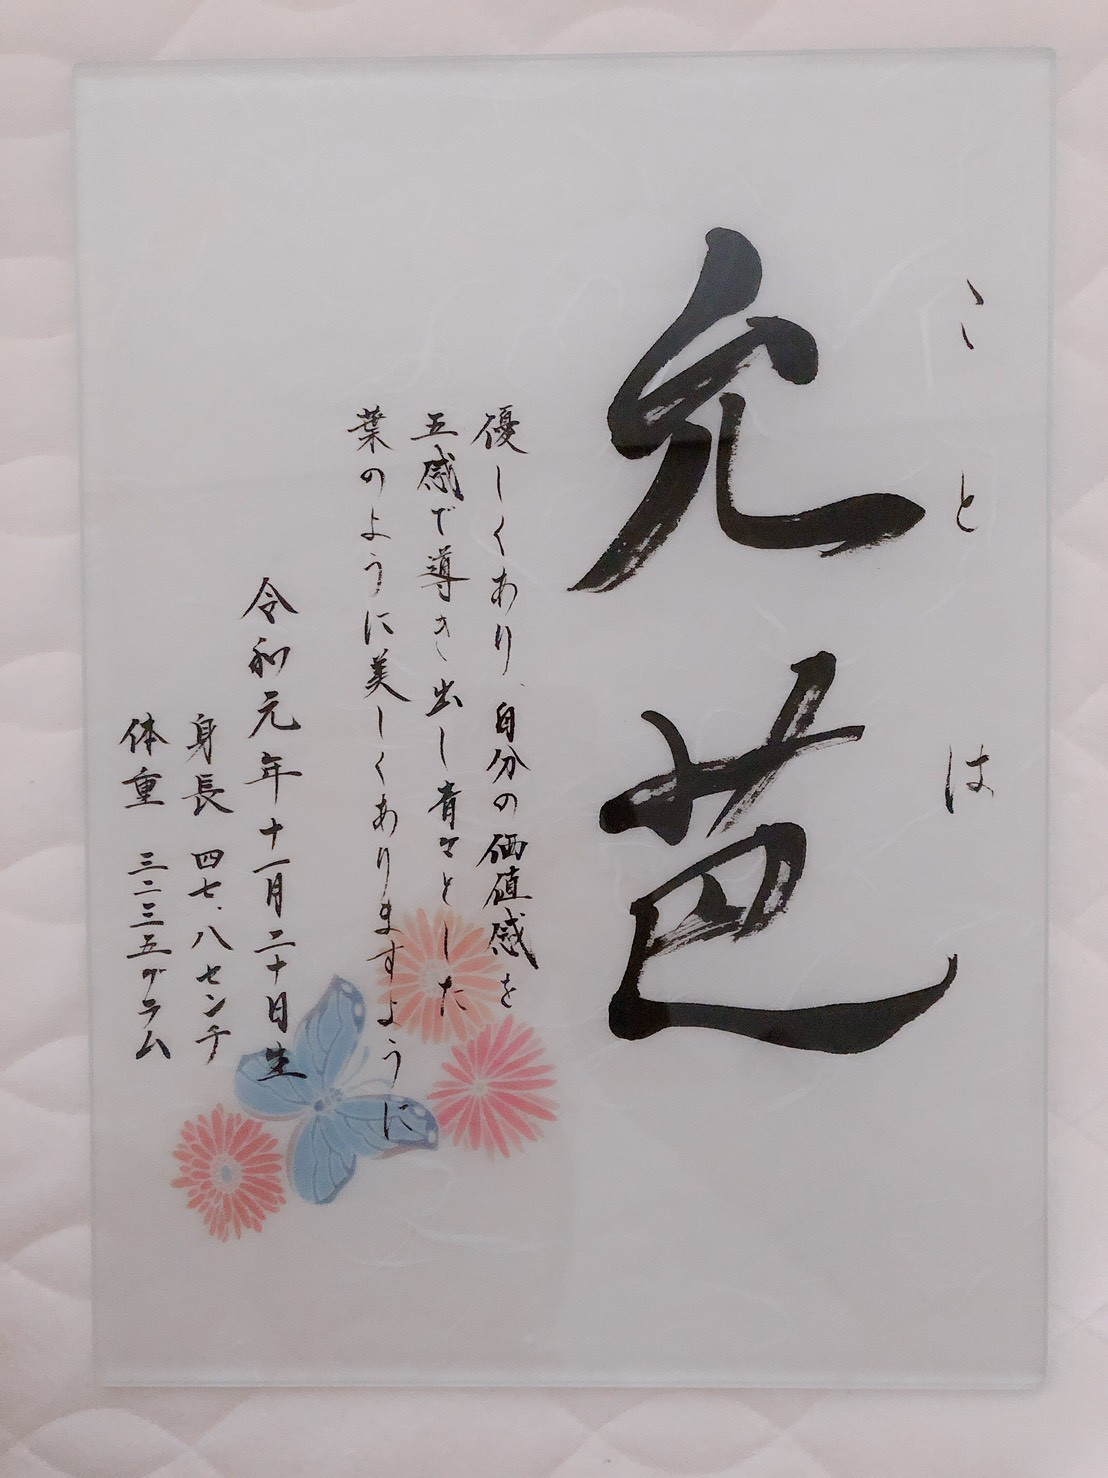 ことは
允芭
優しくあり、自分の価値感を
五感で導き出し青々とした
葉のように美しくありますように
令和元年十一月二十日生
身長 四七、八センチ
体重 三二三五グラム